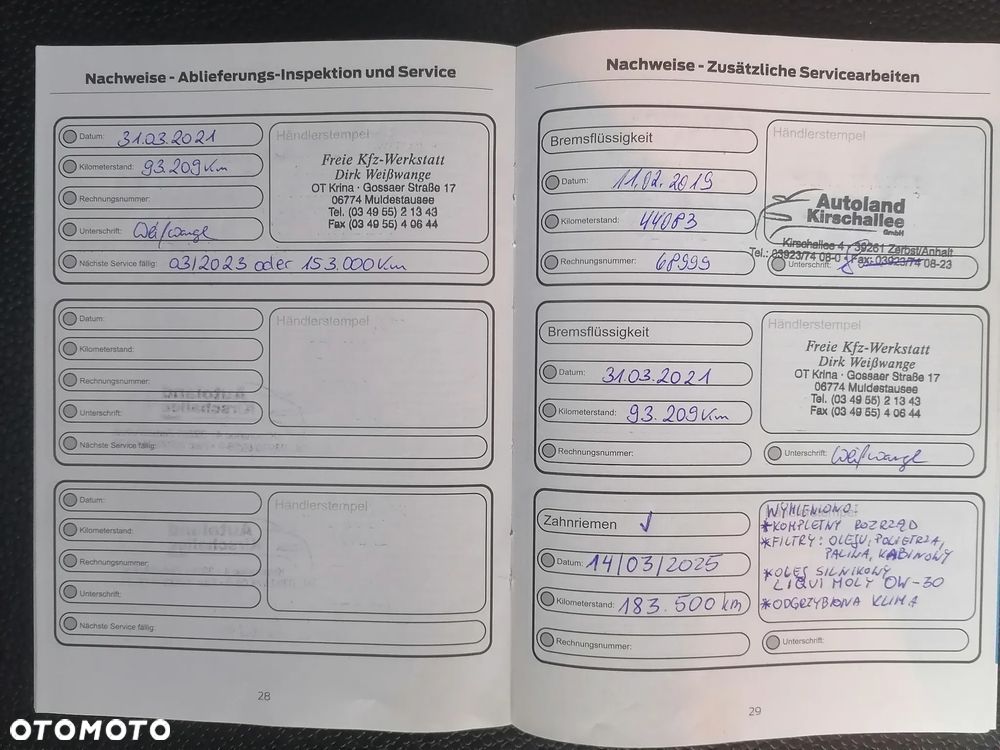 Nachweise - Ablieferungs-Inspektion und Service
Datum: 31.03.2021
Kilometerstand: 93.209 Km
Rechnungsnummer:
Unterschrift: Weißwange
Nächste Service fällig: 03/2023 oder 153.000 Km
Händlerstempel
Freie Kfz-Werkstatt
Dirk Weißwange
OT Krina · Gossaer Straße 17
06774 Muldestausee
Tel. (03 49 55) 2 13 43
Fax (03 49 55) 4 06 44
Datum:
Kilometerstand:
Rechnungsnummer:
Unterschrift:
Nächste Service fällig:
Händlerstempel
Datum:
Kilometerstand:
Rechnungsnummer:
Unterschrift:
Nächste Service fällig:
Händlerstempel
28
Nachweise - Zusätzliche Servicearbeiten
Bremsflüssigkeit
Datum: 11.02.2019
Kilometerstand: 44083
Rechnungsnummer: 68999
Händlerstempel
Autoland
Kirschallee
GmbH
Kirschallee 4 · 39261 Zerbst/Anhalt
Tel.: 03923/74 08-0 · Fax: 03923/74 08-23
Unterschrift:
Bremsflüssigkeit
Datum: 31.03.2021
Kilometerstand: 93.209 Km
Rechnungsnummer:
Händlerstempel
Freie Kfz-Werkstatt
Dirk Weißwange
OT Krina · Gossaer Straße 17
06774 Muldestausee
Tel. (03 49 55) 2 13 43
Fax (03 49 55) 4 06 44
Unterschrift: Weißwange
Zahnriemen
Datum: 14/03/2025
Kilometerstand: 183.500 km
Rechnungsnummer:
WYMIENIONO:
*KOMPLETNY ROZRZĄD
*FILTRY: OLEJU, POWIETRZA,
PALIWA, KABINOWY
*OLEJ SILNIKOWY
LIQUI MOLY 0W-30
*ODGRZYBIONA KLIMA
Unterschrift:
29
OTOMOTO